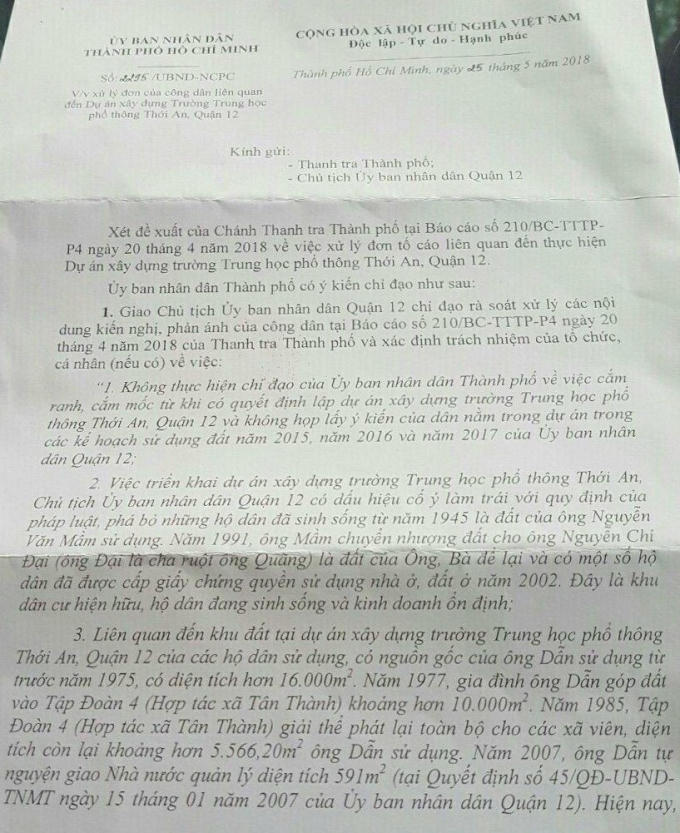 ỦY BAN NHÂN DÂN
THÀNH PHỐ HỒ CHÍ MINH
CỘNG HÒA XÃ HỘI CHỦ NGHĨA VIỆT NAM
Độc lập - Tự do - Hạnh phúc
Số: 2295 /UBND-NCPC
V/v xử lý đơn của công dân liên quan
đến Dự án xây dựng Trường Trung học
phổ thông Thới An, Quận 12
Thành phố Hồ Chí Minh, ngày 25 tháng 5 năm 2018
Kính gửi:
- Thanh tra Thành phố;
- Chủ tịch Ủy ban nhân dân Quận 12
Xét đề xuất của Chánh Thanh tra Thành phố tại Báo cáo số 210/BC-TTTP-
P4 ngày 20 tháng 4 năm 2018 về việc xử lý đơn tố cáo liên quan đến thực hiện
Dự án xây dựng trường Trung học phổ thông Thới An, Quận 12.
Ủy ban nhân dân Thành phố có ý kiến chỉ đạo như sau:
1. Giao Chủ tịch Ủy ban nhân dân Quận 12 chỉ đạo rà soát xử lý các nội
dung kiến nghị, phản ánh của công dân tại Báo cáo số 210/BC-TTTP-P4 ngày 20
tháng 4 năm 2018 của Thanh tra Thành phố và xác định trách nhiệm của tổ chức,
cá nhân (nếu có) về việc:
"1. Không thực hiện chỉ đạo của Ủy ban nhân dân Thành phố về việc cắm
ranh, cắm mốc từ khi có quyết định lập dự án xây dựng trường Trung học phổ
thông Thới An, Quận 12 và không họp lấy ý kiến của dân nằm trong dự án trong
các kế hoạch sử dụng đất năm 2015, năm 2016 và năm 2017 của Ủy ban nhân
dân Quận 12;
2. Việc triển khai dự án xây dựng trường Trung học phổ thông Thới An,
Chủ tịch Ủy ban nhân dân Quận 12 có dấu hiệu cố ý làm trái với quy định của
pháp luật, phá bỏ những hộ dân đã sinh sống từ năm 1945 là đất của ông Nguyễn
Văn Mầm sử dụng. Năm 1991, ông Mầm chuyển nhượng đất cho ông Nguyễn Chi
Đại (ông Đại là cha ruột ông Quãng) là đất của Ông, Bà để lại và có một số hộ
dân đã được cấp giấy chứng quyền sử dụng nhà ở, đất ở năm 2002. Đây là khu
dân cư hiện hữu, hộ dân đang sinh sống và kinh doanh ổn định;
3. Liên quan đến khu đất tại dự án xây dựng trường Trung học phổ thông
Thới An, Quận 12 của các hộ dân sử dụng, có nguồn gốc của ông Dẫn sử dụng từ
trước năm 1975, có diện tích hơn 16.000m². Năm 1977, gia đình ông Dẫn góp đất
vào Tập Đoàn 4 (Hợp tác xã Tân Thành) khoảng hơn 10.000m². Năm 1985, Tập
Đoàn 4 (Hợp tác xã Tân Thành) giải thể phát lại toàn bộ cho các xã viên, diện
tích còn lại khoảng hơn 5.566,20m² ông Dẫn sử dụng. Năm 2007, ông Dẫn tự
nguyện giao Nhà nước quản lý diện tích 591m² (tại Quyết định số 45/QĐ-UBND-
TNMT ngày 15 tháng 01 năm 2007 của Ủy ban nhân dân Quận 12). Hiện nay,